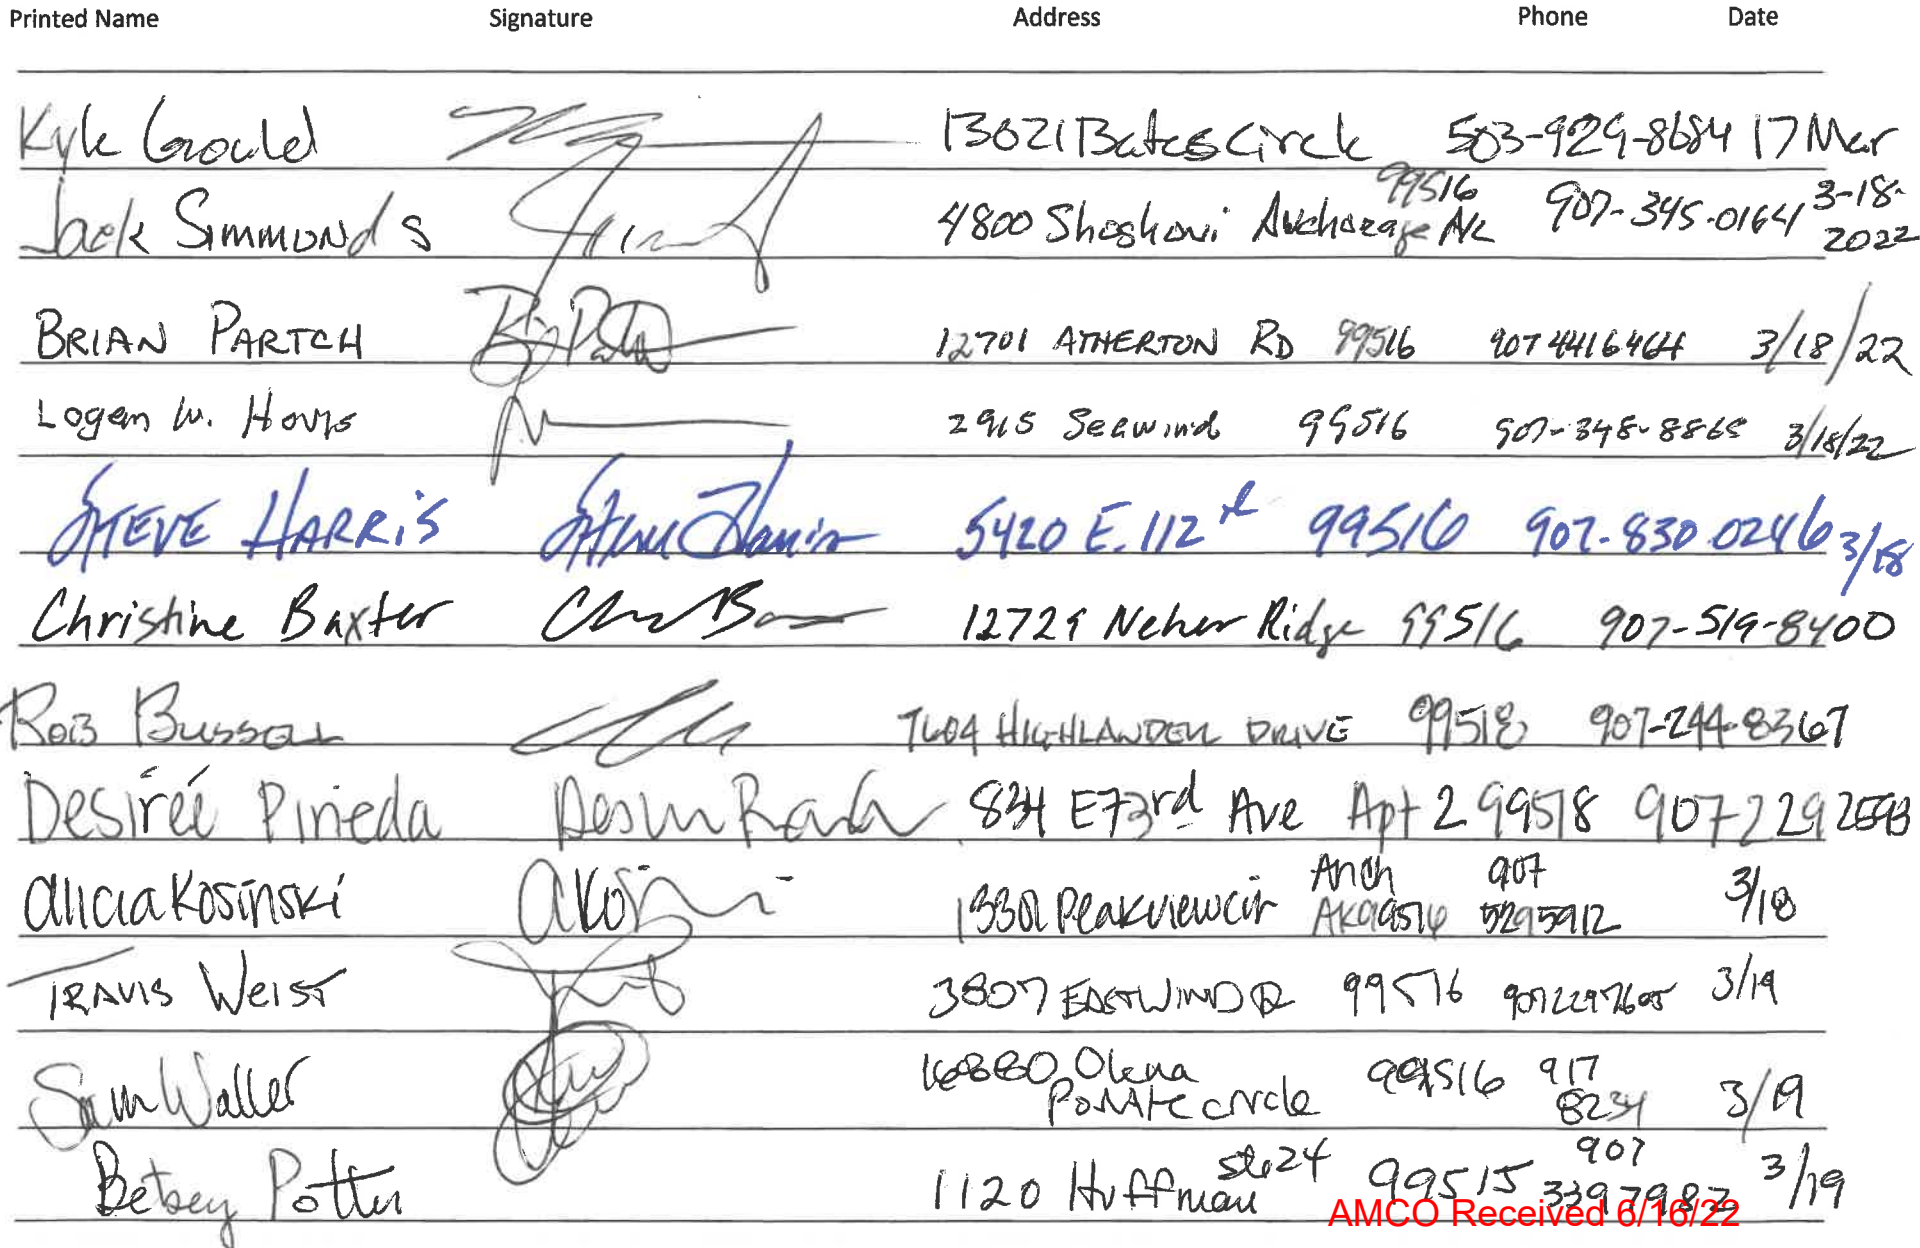 Printed Name Signature Address Phone Date
Kyle Gould 13021 Bates Circle 503-929-8684 17 Mar
Jack Simmonds 4800 Shoshoni Anchorage AK 99516 907-345-0164 3-18-2022
BRIAN PARTCH 12701 ATHERTON RD 99516 907 4416464 3/18/22
Logan W. 2915 Seawind 99516 907-348-8865 3/18/22
STEVE HARRIS Steve Harris 5420 E. 112th 99516 907-830-0246 3/18
Christine Baxter 12729 Neher Ridge 99516 907-519-8400
ROB BUSSELL 7604 HIGHLANDER DRIVE 99518 907-244-8367
Desireé Pineda 834 E73rd Ave Apt 2 99518 907 229 2593
Alicia Kosinski Peakview cir Anch AK 99516 907 5295912 3/18
TRAVIS WEIST 3807 EASTWIND DR 99516 9072297605 3/19
Sam Waller Pointe circle 99516 917 8234 3/19
Betsey Potter 1120 Huffman ste 24 99515 907 3397982 3/19
AMCO Received 6/16/22